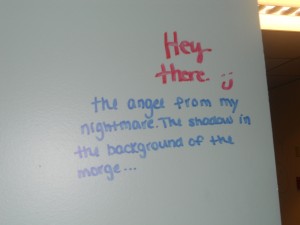 Hey
there. :)
the angel from my
nightmare. The shadow in
the background of the
morge...